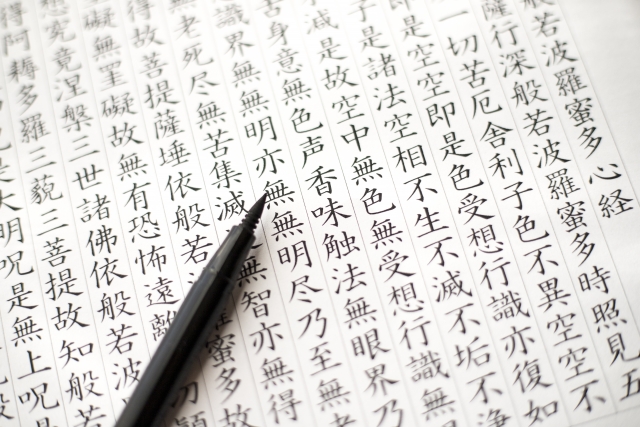 般若波羅蜜多心経
薩行深般若波羅蜜多時照見五
一切苦厄舎利子色不異空空不
即是空空即是色受想行識亦復如
子是諸法空相不生不滅不垢不浄
滅是故空中無色無受想行識無
舌身意無色声香味触法無眼界乃
識界無無明亦無無明尽乃至無老
無老死尽無苦集滅無智亦無得
得故菩提薩埵依般若蜜多故
礙無罣礙故無有恐怖遠離切顛
究竟涅槃三世諸佛依般若波
得阿耨多羅三藐三菩提故知般若
是大明呪是無上呪